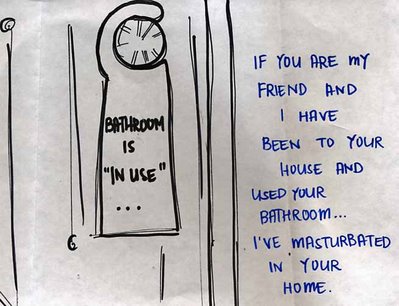 BATHROOM
IS
"IN USE"
...
IF YOU ARE MY
FRIEND AND
I HAVE
BEEN TO YOUR
HOUSE AND
USED YOUR
BATHROOM...
I'VE MASTURBATED
IN YOUR
HOME.